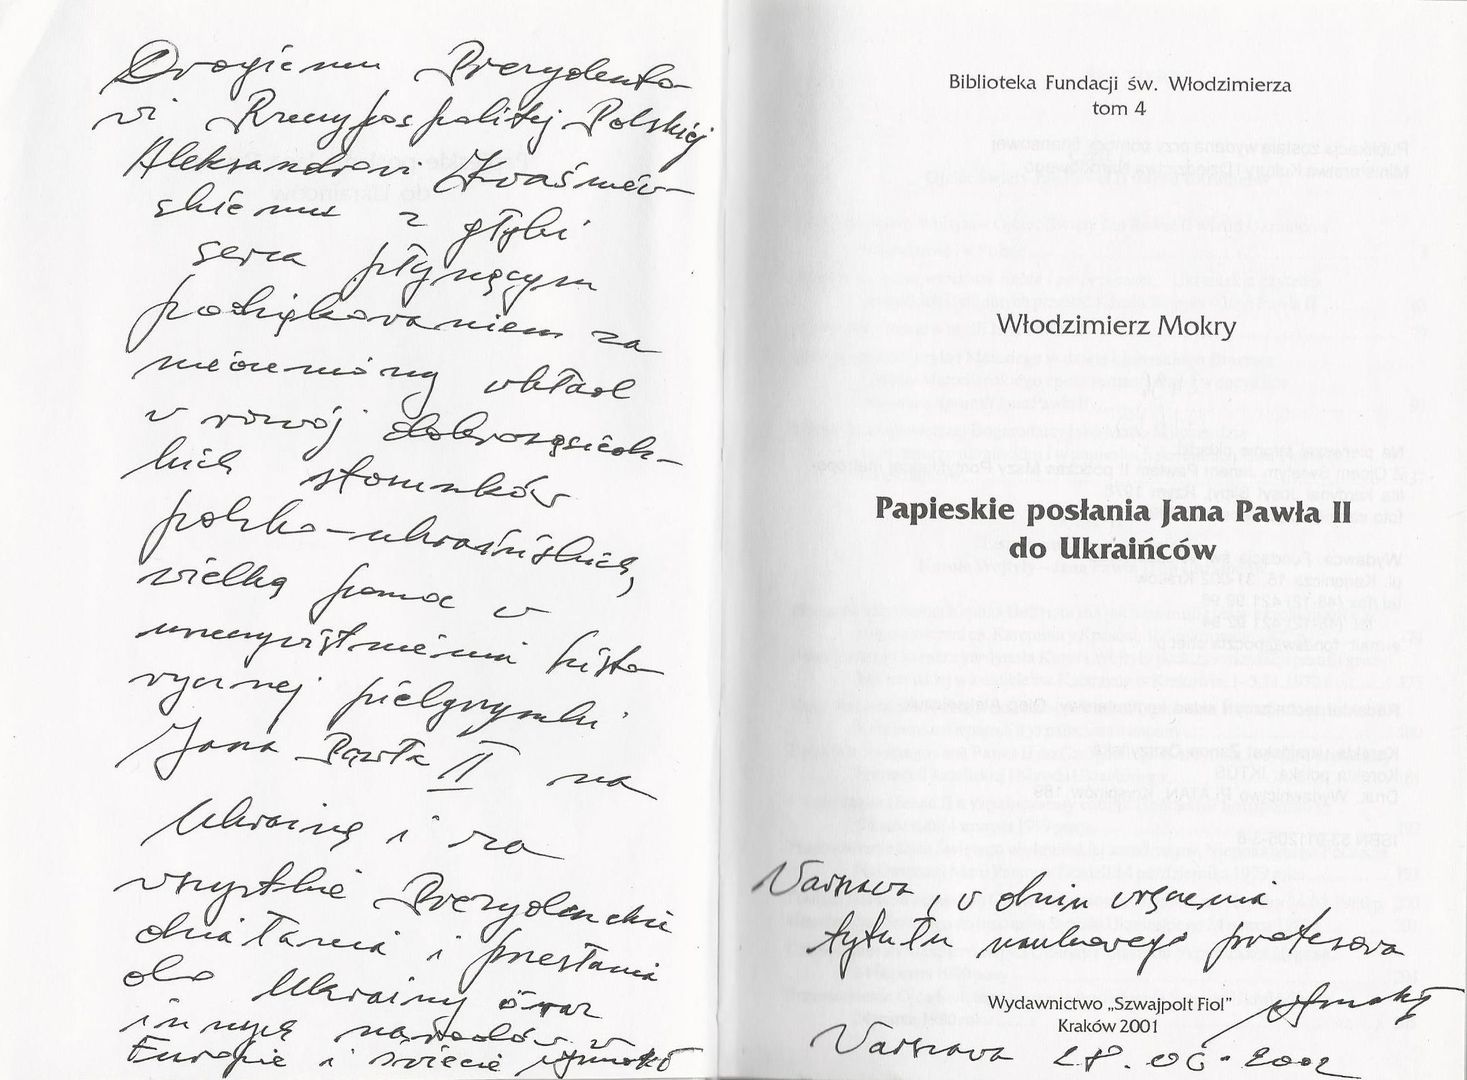 Drogiemu Prezydento-
wi Rzeczypospolitej Polskiej
Aleksandrowi Kwaśniew-
skiemu z głębi
serca płynącym
podziękowaniem za
nieoceniony wkład
w rozwój dobrosąsiedz-
kich stosunków
polsko-ukraińskich,
wielką pomoc w
urzeczywistnieniu histo-
rycznej pielgrzymki
Jana Pawła II na
Ukrainę i za
wszystkie Prezydenckie
działania i przesłania
dla Ukrainy oraz
innych narodów w
Europie i świecie
Biblioteka Fundacji św. Włodzimierza
tom 4
Włodzimierz Mokry
Papieskie posłania Jana Pawła II
do Ukraińców
Warszawa, w dniu wręczenia
tytułu naukowego profesora
Wydawnictwo „Szwajpolt Fiol”
Kraków 2001
Warszawa 28.06.2002